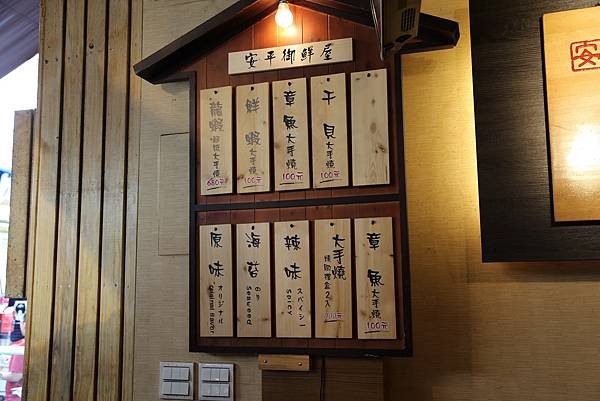 安平御鮮屋
干貝大手燒
100元
章魚大手燒
100元
鮮蝦大手燒
100元
龍蝦
大手燒
680元
章魚大手燒
100元
大手燒
2入
辣味
スパイシー
SPICY
海苔
のり
Seaweed
原味
オリジナル
安